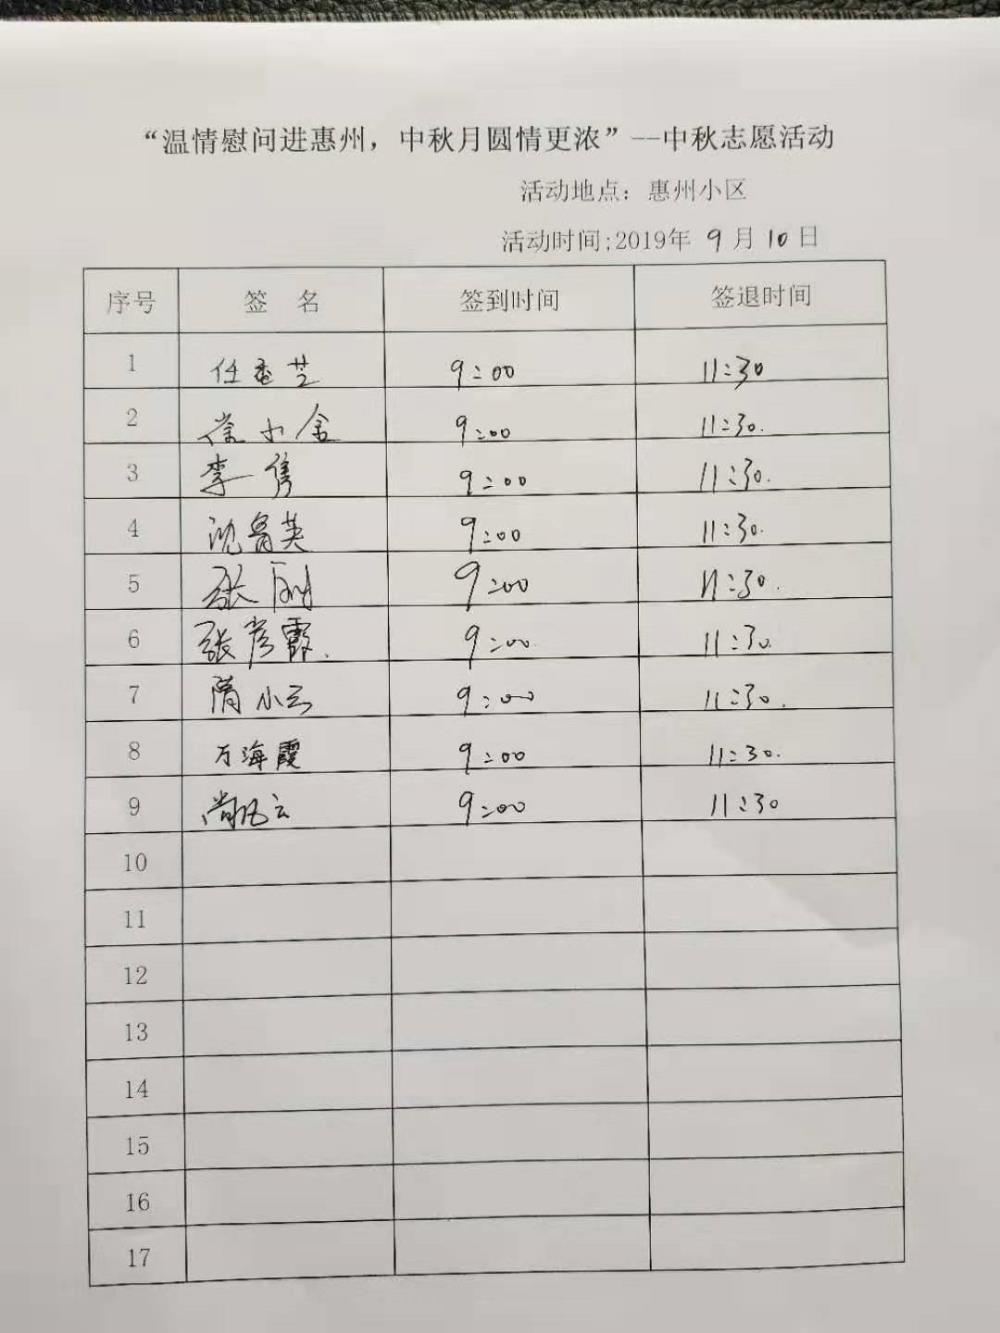 “温情慰问进惠州，中秋月圆情更浓”--中秋志愿活动
活动地点：惠州小区
活动时间:2019年 9月10日
序号 签 名 签到时间 签退时间
1 任香芝 9:00 11:30
2 徐小金 9:00 11:30.
3 李隽 9:00 11:30.
4 沈鲁英 9:00 11:30.
5 张刚 9:00 11:30.
6 张彦霞. 9:00. 11:30.
7 隋小云 9:00 11:30.
8 万海霞 9:00 11:30.
9 尚风云 9:00 11:30
10
11
12
13
14
15
16
17